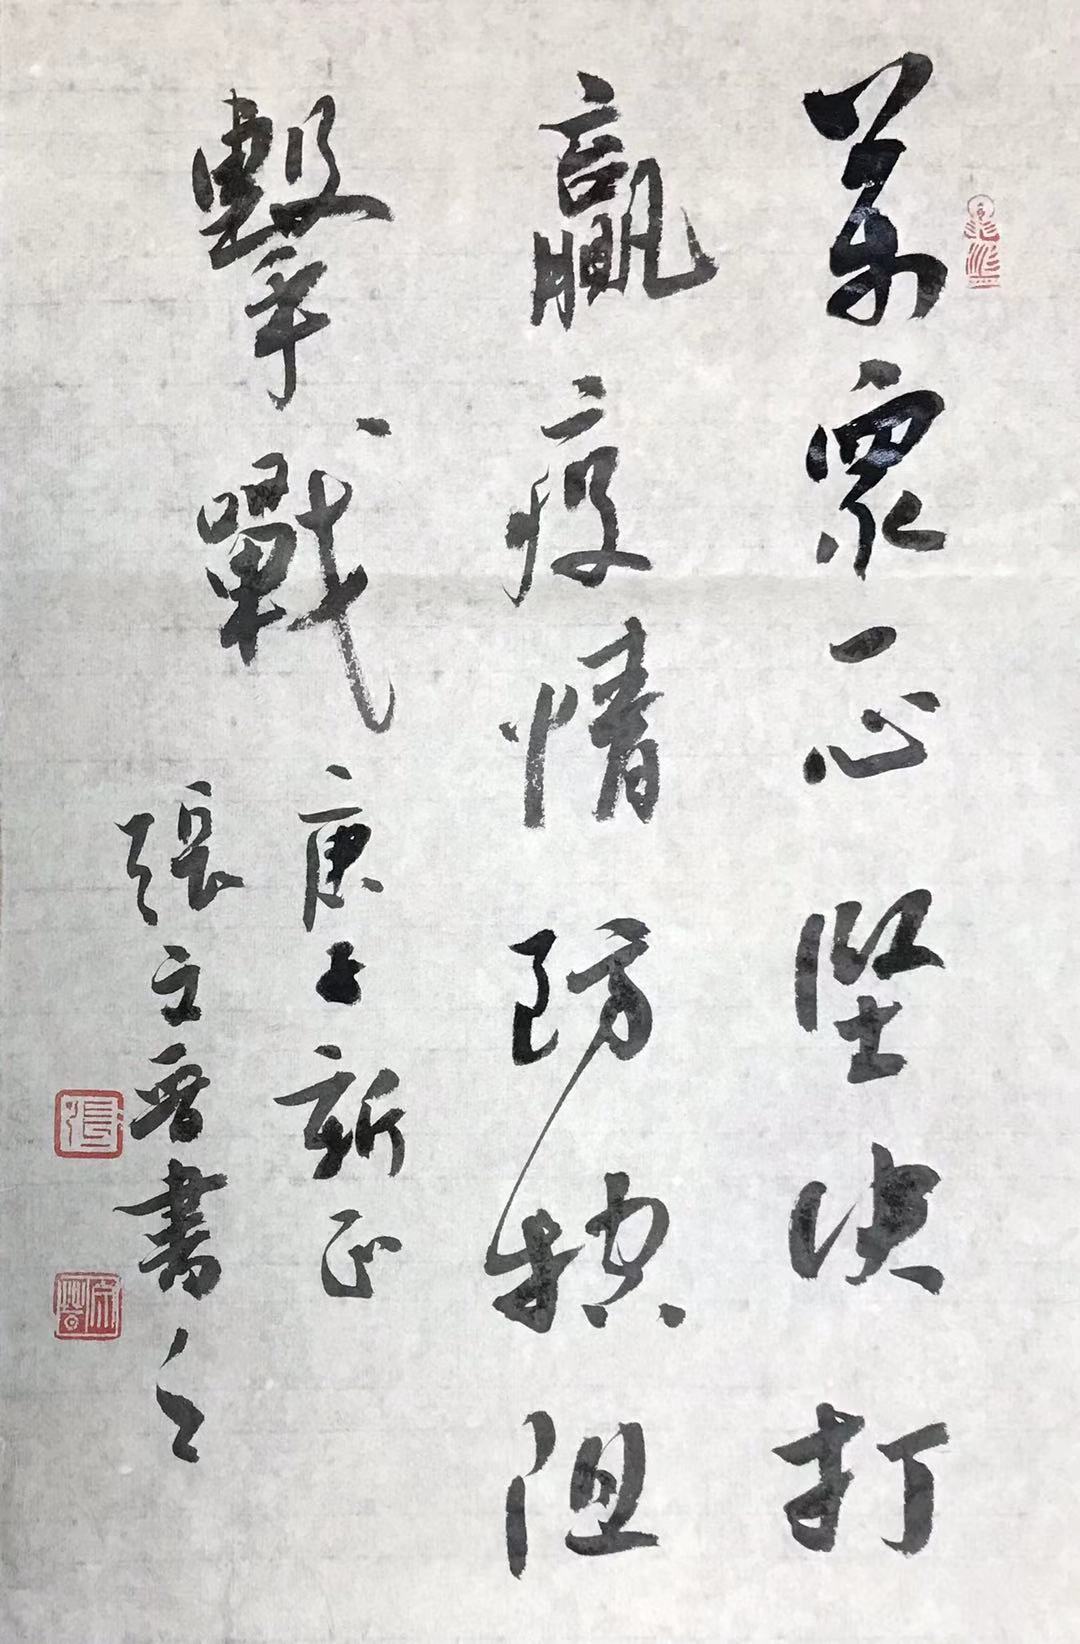 萬衆一心堅决打
贏疫情防控阻
擊戰
庚子新正
張文晋書之
張